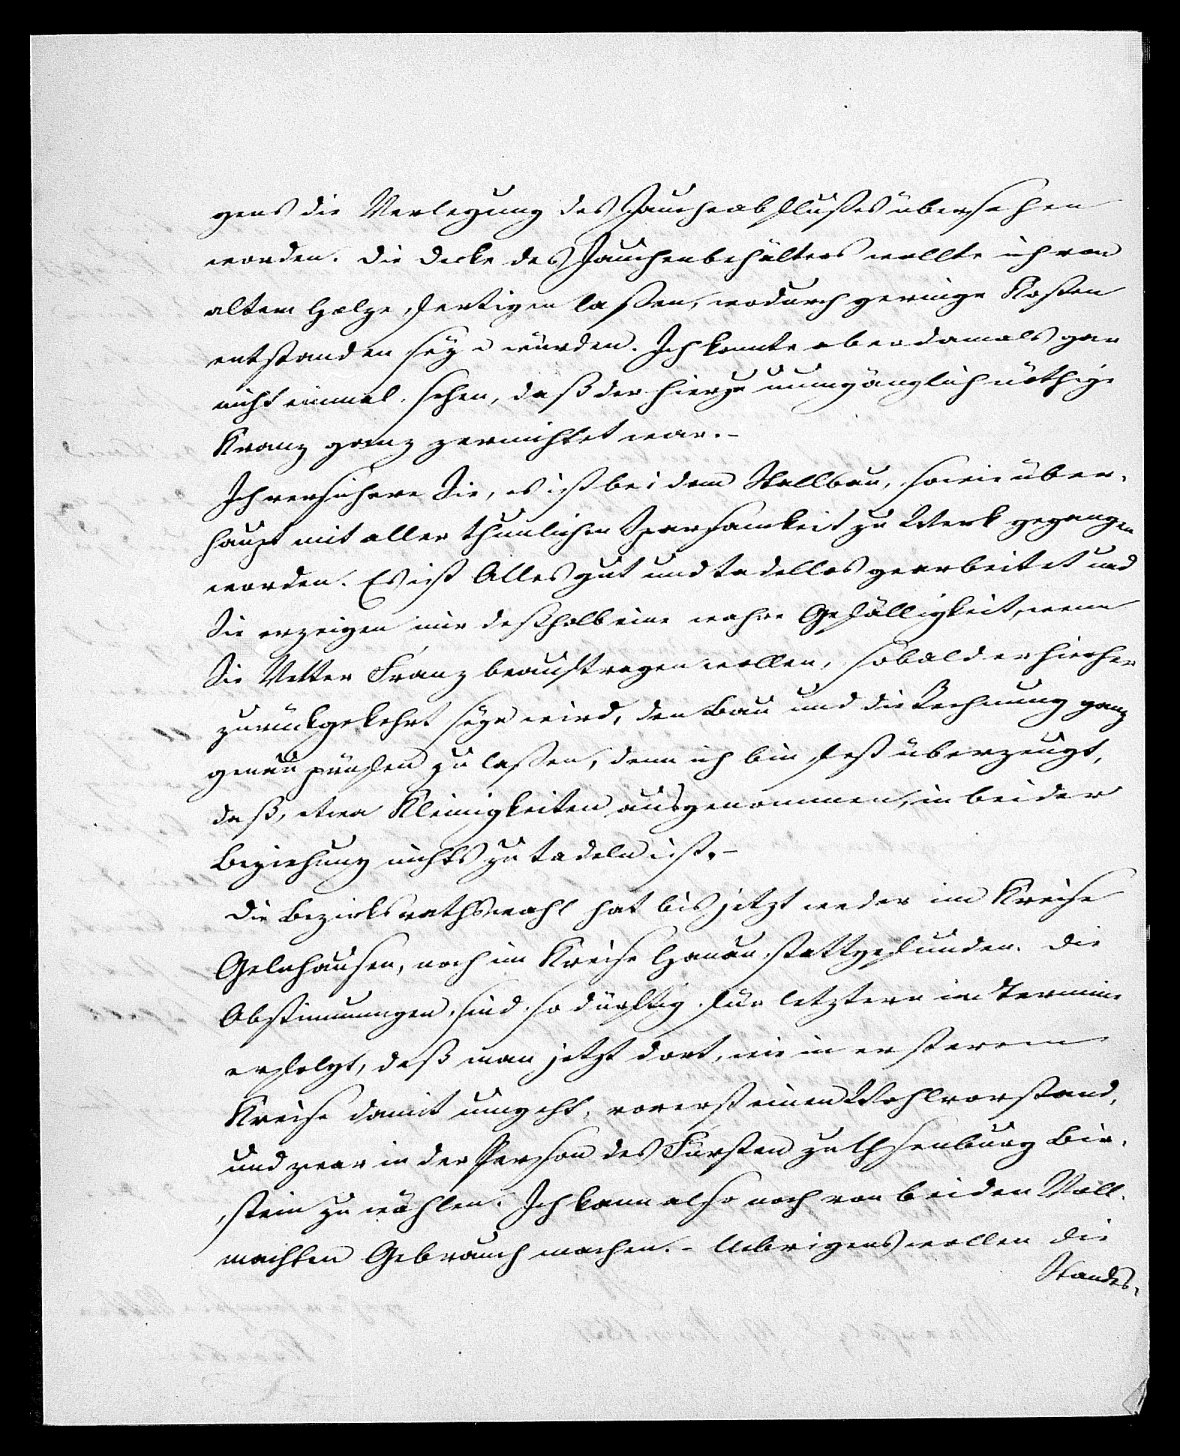 gens die Verlegung des Jaucheabflußes übersehen
worden. Die Decke des Jauchenbehälters wollte ich von
altem Holze fertigen laßen, wodurch geringe Kosten
entstanden seyn würden. Ich konnte aber damals gar
nicht einmal sehen, daß der hierzu unumgänglich nöthige
Kranz ganz zernichtet war. –
Ich versichere Sie, es ist bei dem Stallbau, sowie über-
haupt mit aller thunlichen Sparsamkeit zu Werk gegangen
worden. Es ist Alles gut und tadellos gearbeitet und
Sie erzeigen mir deßhalb eine wahre Gefälligkeit, wenn
Sie Vetter Franz beauftragen wollen, sobald er hierher
zurückgekehrt seyn wird, den Bau und die Rechnung ganz
genau prüfen zu laßen, denn ich bin fest überzeugt,
daß, etwa Kleinigkeiten ausgenommen, in beider
Beziehung nichts zu tadeln ist. –
Die Bezirksrathswahl hat bis jetzt weder im Kreise
Gelnhausen, noch im Kreise Hanau stattgefunden. Die
Abstimmungen sind so dürftig für letztern im Termine
erfolgt, daß man jetzt dort, wie in ersterem
Kreise damit umgeht, vorerst einen Wahlvorstand,
und zwar in der Person des Fürsten zu Ysenburg Bir-
stein zu wählen. Ich kann also noch von beiden Voll-
machten Gebrauch machen. – Uebrigens wollen die
Standes-